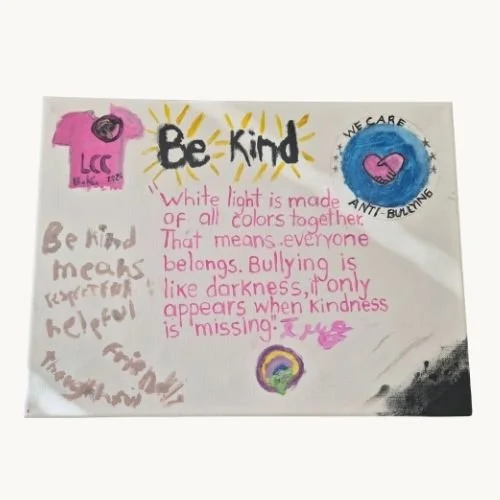 LCC
Be Kind
WE CARE
ANTI-BULLYING
"White light is made
of all colors together.
That means everyone
belongs. Bullying is
like darkness, it only
appears when kindness
is missing."
Be Kind
means
respectful
helpful